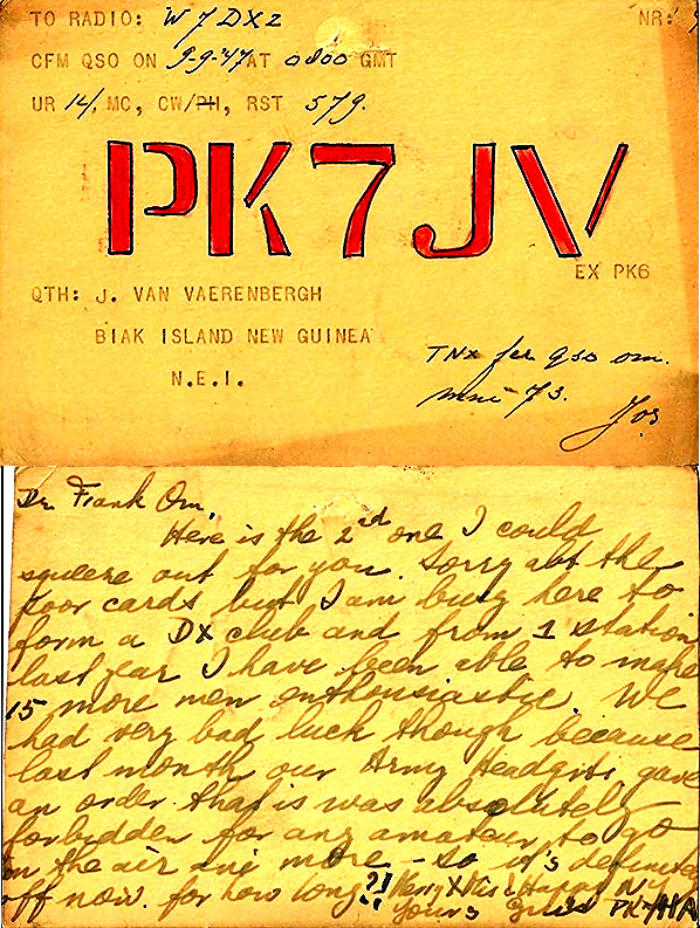 TO RADIO: W7DXZ NR:
CFM QSO ON 9-9-'47 AT 0800 GMT
UR 14. MC, CW/PH, RST 579.
PK7JV
EX PK6
QTH: J. VAN VAERENBERGH
BIAK ISLAND NEW GUINEA
N.E.I.
TNX fer qso om.
mni 73.
Jos
Dr Frank Om,
Here is the 2nd one I could
squeeze out for you. Sorry abt the
poor cards but I am busy here to
form a DX club and from 1 station
last year I have been able to make
15 more men enthousiastic. We
had very bad luck though because
last month our Army Headqrts gave
an order that is was absolutely
forbidden for any amateur to go
on the air any more - so it's definite
off now. for how long?!! Merry XMis & Happy N.Y.
Yours